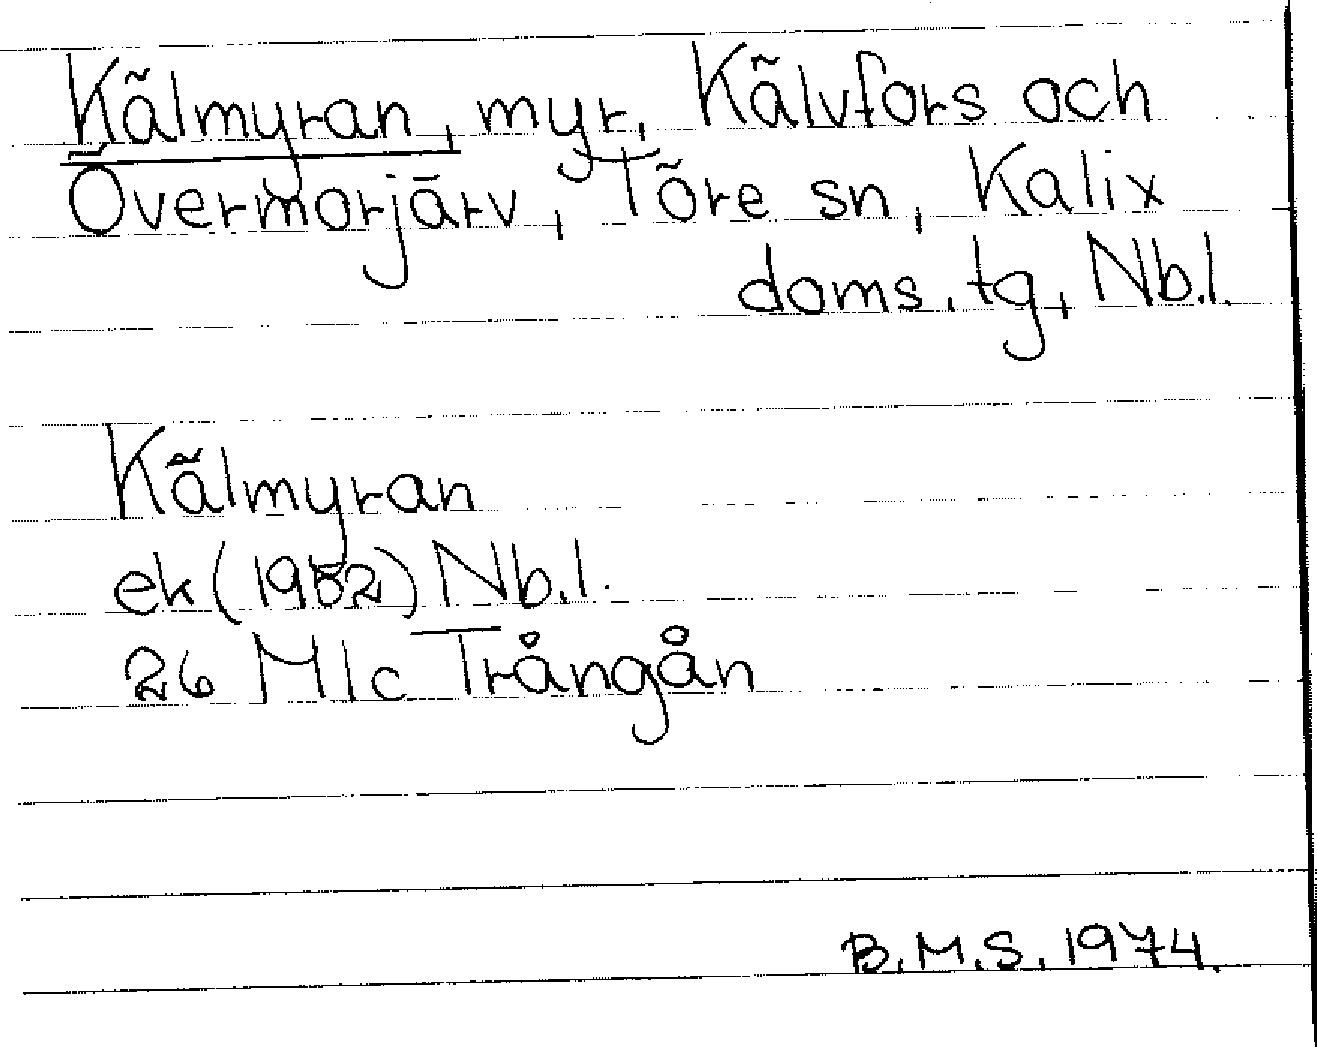 Kälmyran, myr, Kälvfors och
Övermorjärv, Töre sn, Kalix
doms. tg, Nb.l.
Kälmyran
ek (1952) Nb.l.
26 M1c Trångån
B.M.S. 1974.